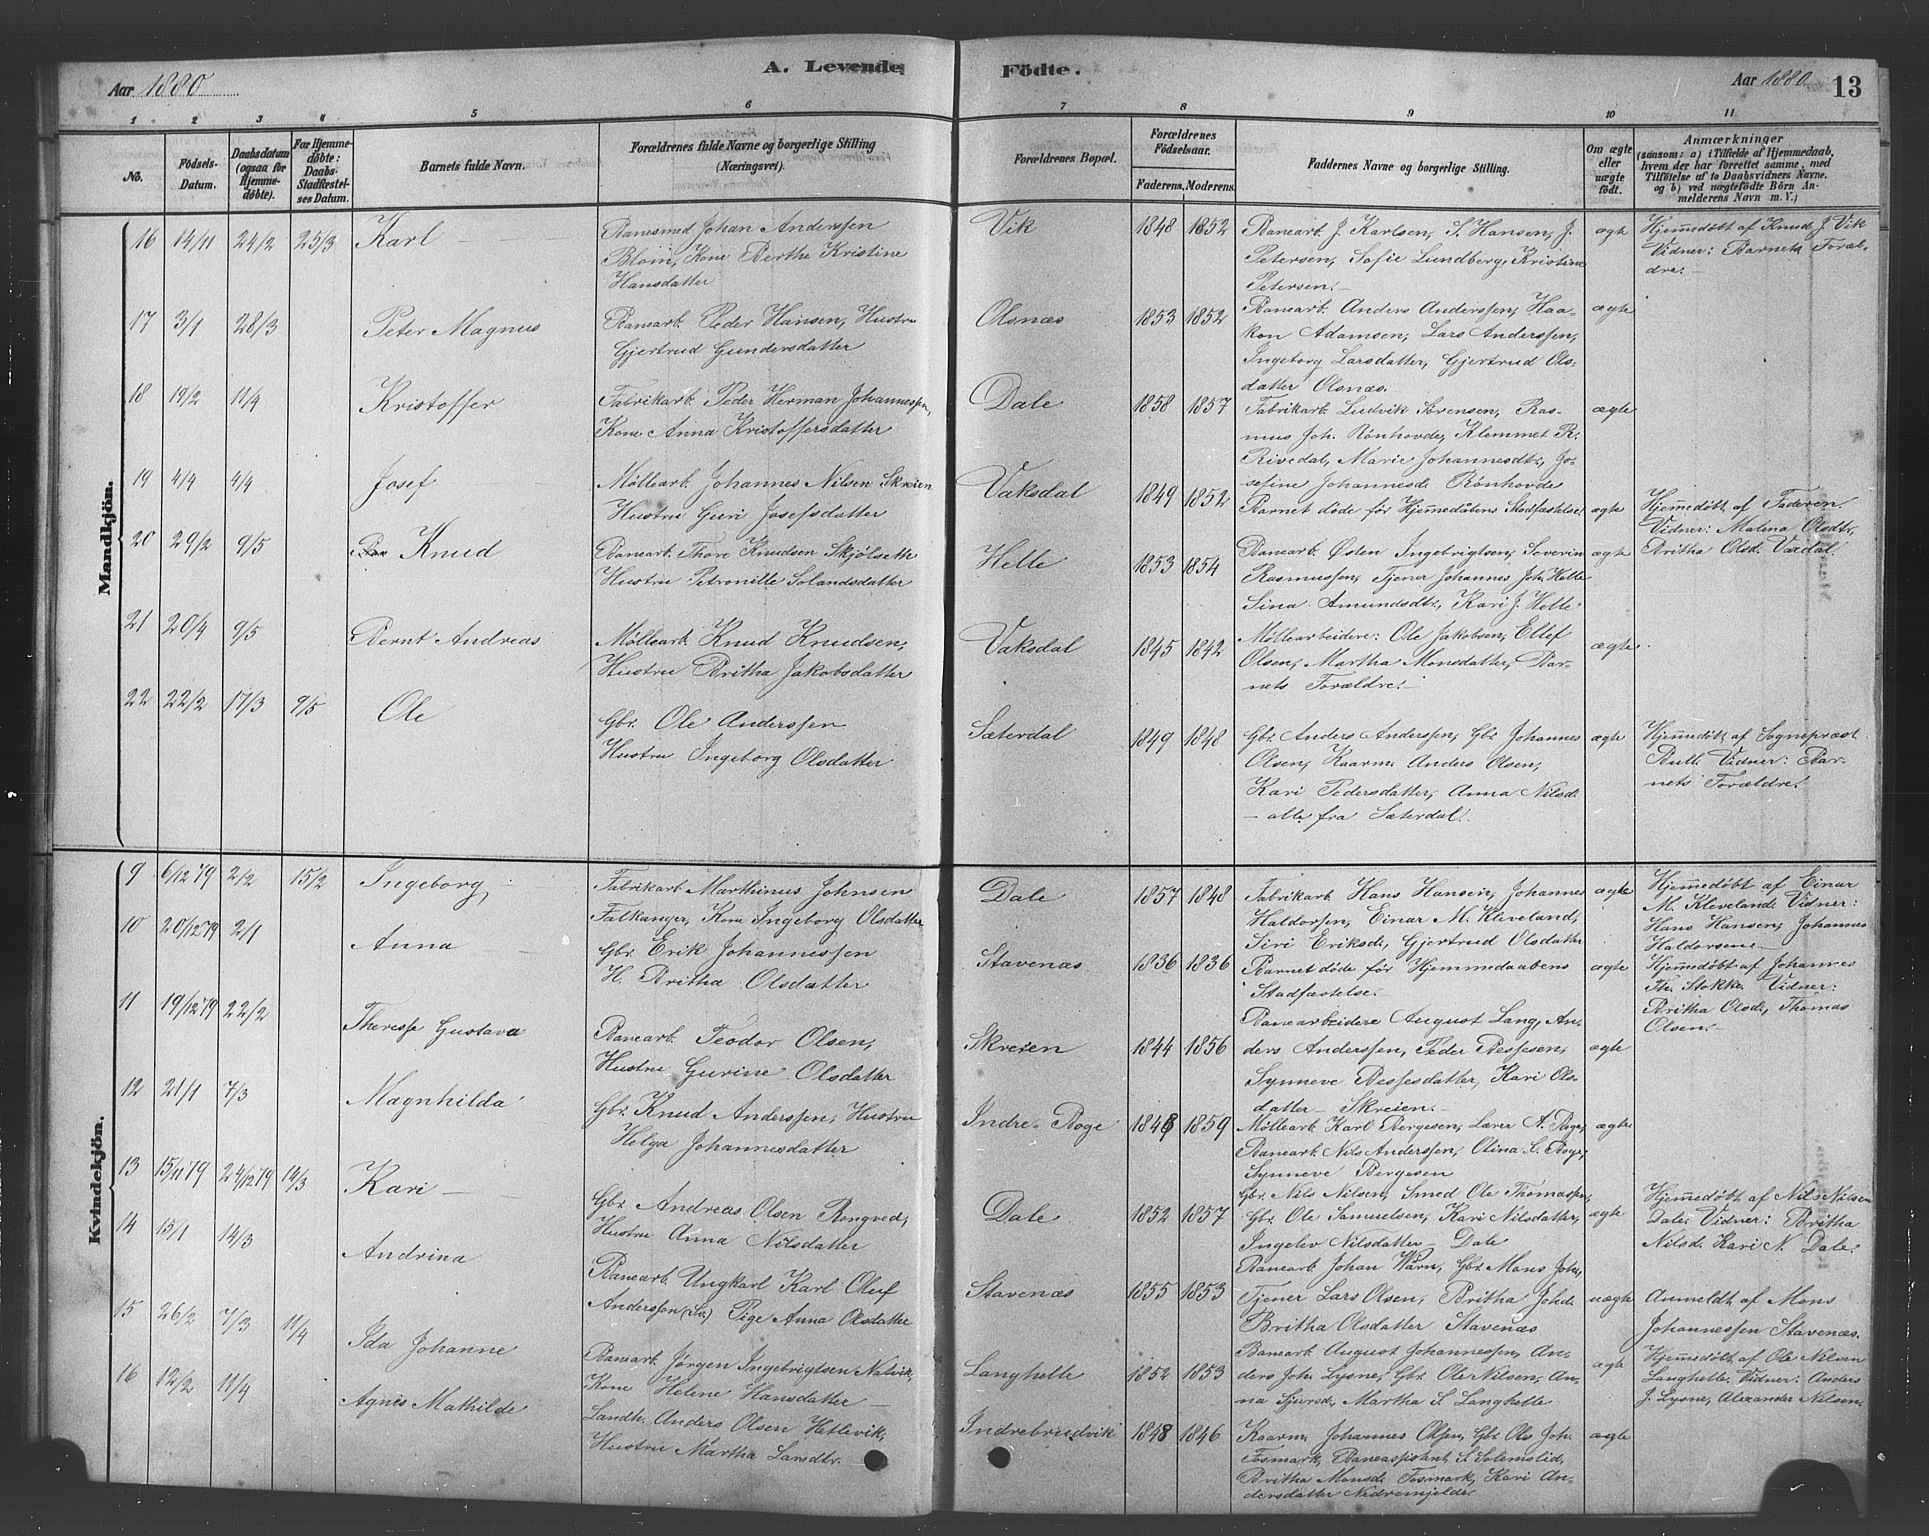 Aar 1880
A. Levende Födte.
Aar 1880 13
1 2 3 4 5 6 7 8 9 10 11
No.
Födsels-
Datum.
Daabsdatum
(ogsaa för
Hjemme-
döbte).
For Hjemme-
döbte:
Daabs-
Stadfæstel-
ses Datum.
Barnets fulde Navn.
Forældrenes fulde Navne og borgerlige Stilling
(Næringsvei).
Forældrenes Bopæl.
Forældrenes
Födselsaar.
Faderens. Moderens.
Faddernes Navne og borgerlige Stilling.
Om ægte
eller
uægte
födt.
Anmærkninger
(saasom: a) i Tilfælde af Hjemmedaab,
hvem der har forrettet samme, med
Tilföielse af to Daabsvidners Navne.
og b) ved uægtefödte Börn An-
melderens Navn m. V.)
Mandkjön.
16 14/11 24/2 25/3 Karl
Banesmed Johan Anderssen
Blom, Kone Berthe Kristine
Hansdatter
Vik 1848 1852
Banearb. J. Karlsen, S. Hansen, J.
Petersen, Sofie Lundberg, Kristine
Petersen.
ægte
Hjemmedøbt af Knud J. Vik
Vidner: Barnets Foræl-
dre.
17 3/1 28/3 Peter Magnus
Banearb. Peder Hansen, Hustru
Gjertrud Gundersdatter
Olsnæs 1853 1852
Banearb. Anders Anderssen, Haa-
kon Adamsen, Lars Anderssen,
Ingeborg Larsdatter, Gjertrud Ols-
datter Olsnæs.
ægte
18 19/2 11/4 Kristoffer
Fabrikarb. Peder Herman Johannessen,
Kone Anna Kristoffersdatter
Dale 1858 1857
Fabrikarb. Ludvik Sørensen, Ras-
mus Joh. Rönhovde, Klemmet R.
Rivedal, Marie Johannesdtr, Jo-
sefine Johannesd. Rönhovde
ægte
19 4/4 4/4 Josef
Mølleart. Johannes Nilsen Skreien
Hustru Guri Josefsdatter
Vaksdal 1849 1852
Barnet døde før Hjemmedåbens Stadfæstelse.
ægte
Hjemmedøbt af Faderen.
Vidner: Malena Olsdtr,
Britha Olsd. Vaxdal.
20 29/2 9/5 Knud
Banearb. Thore Knudsen Skjölseth
Hustru Petronille Solandsdatter
Helle 1853 1854
Banearb. Østen Ingebrigtsen, Severin
Rasmussen, Tjener Johannes Joh. Helle
Sina Amundsdtr, Kari J. Helle
ægte
21 20/4 9/5 Bernt Andreas
Mølleart. Knud Knudsen,
Hustru Britha Jakobsdatter
Vaksdal 1845 1842
Møllearbeidere: Ole Jakobsen, Ellef
Olsen, Martha Monsdatter, Bar-
nets Forældre.
ægte
22 22/2 17/3 9/5 Ole
Gbr. Ole Anderssen
Hustru Ingeborg Olsdatter
Sæterdal 1849 1848
Gbr. Anders Anderssen, Gbr. Johannes
Olsen, Kaarm. Anders Olsen,
Kari Pedersdatter, Anna Nilsd.
- alle fra Sæterdal.
ægte
Hjemmedøbt af Sognepræst
Bull. Vidner: Bar-
nets Forældre.
Kvindekjön.
9 6/12 79 2/2 15/2 Ingeborg
Fabrikarb. Marthinus Johnsen
Falkanger, Kone Ingeborg Olsdatter
Dale 1857 1848
Fabrikarb. Hans Hansen, Johannes
Haldorsen, Einar M. Kleveland,
Siri Eriksd., Gjertrud Olsdatter
ægte
Hjemmedøbt af Einar
M. Kleveland. Vidner:
Hans Hansen, Johannes
Haldorsen.
10 20/12 79 2/1 Anna
Gbr. Erik Johannessen
H. Britha Olsdatter
Stavenæs 1836 1836
Barnet døde før Hjemmedaabens
Stadfæstelse.
ægte
Hjemmedøbt af Johannes
Th. Stokke. Vidner:
Britha Olsd., Thomas
Olsen.
11 19/12 79 22/2 Therese Gustava
Banearb. Teodor Olsen,
Hustru Gurine Olsdatter
Skreien 1844 1856
Banearbeidere August Lang, An-
ders Anderssen, Peder Bessesen,
Synneve Bessesdatter, Kari Ols-
datter - Skreien.
ægte
12 21/1 7/3 Magnhilda
Gbr. Knud Anderssen, Hustru
Helga Johannesdatter
Indre Boge 1848 1859
Mølleart. Karl Bergesen, Lærer A. Boge,
Banearb. Nils Anderssen, Olina L. Boge,
Synneve Bergesen
ægte
13 15/11 79 24/12 79 14/3 Kari
Gbr. Andreas Olsen Rongved,
Hustru Anna Nilsdatter
Dale 1852 1857
Gbr. Nils Nilsen, Smed Ole Thomassen,
Gbr. Ole Samuelsen, Kari Nilsdatter,
Ingelev Nilsdatter - Dale
ægte
Hjemmedøbt af Nils Nilsen
Dale. Vidner: Britha
Nilsd. Kari N. Dale.
14 15/1 14/3 Andrina
Banearb. Ungkarl Karl Oluf
Anderssen (Sv.) Pige Anna Olsdatter
Stavenæs 1855 1853
Banearb. Johan Wärn, Gbr. Mons Joh.,
Tjener Lars Olsen, Britha Johd.
Britha Olsdatter Stavenæs
uægte
Anmeldt af Mons
Johannessen Stavenæs.
15 26/2 7/3 11/4 Ida Johanne
Banearb. Jørgen Ingebrigtsen Nalvik,
Kone Helene Hansdatter
Langhelle 1852 1853
Banearb. August Johannessen, An-
ders John Lysne, Gbr. Ole Nilsen, An-
na Sjursd., Martha S. Langhelle
ægte
Hjemmedøbt af Ole Nilsen
Langhelle. Vidner: Anders
J. Lysne, Alexander Nilsen.
16 12/2 11/4 Agnes Mathilde
Landh. Anders Olsen Hetlevik,
Hustru Martha Larsdtr.
Indrebrudvik 1848 1846
Kaarm. Johannes Olsen, Gbr. Ole Joh.
Fosmark, Baneassistant S. Solemslid,
Britha Monsd. Fosmark, Kari An-
dersdatter Nedremjelde.
ægte